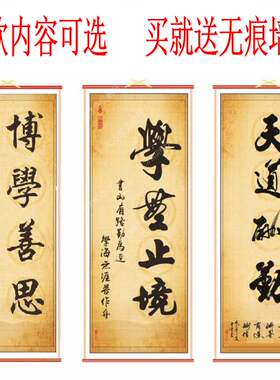 款内容可选 买就送无痕墙
博學善思
學無止境
書山有路勤為徑
學海無涯苦作舟
天道酬勤